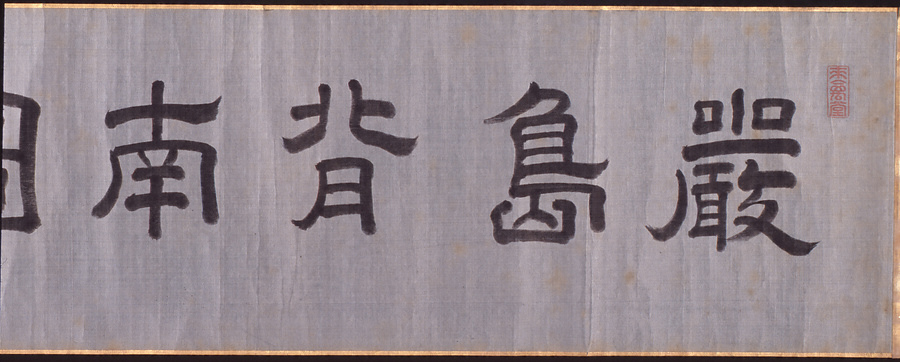 嚴島背南圖